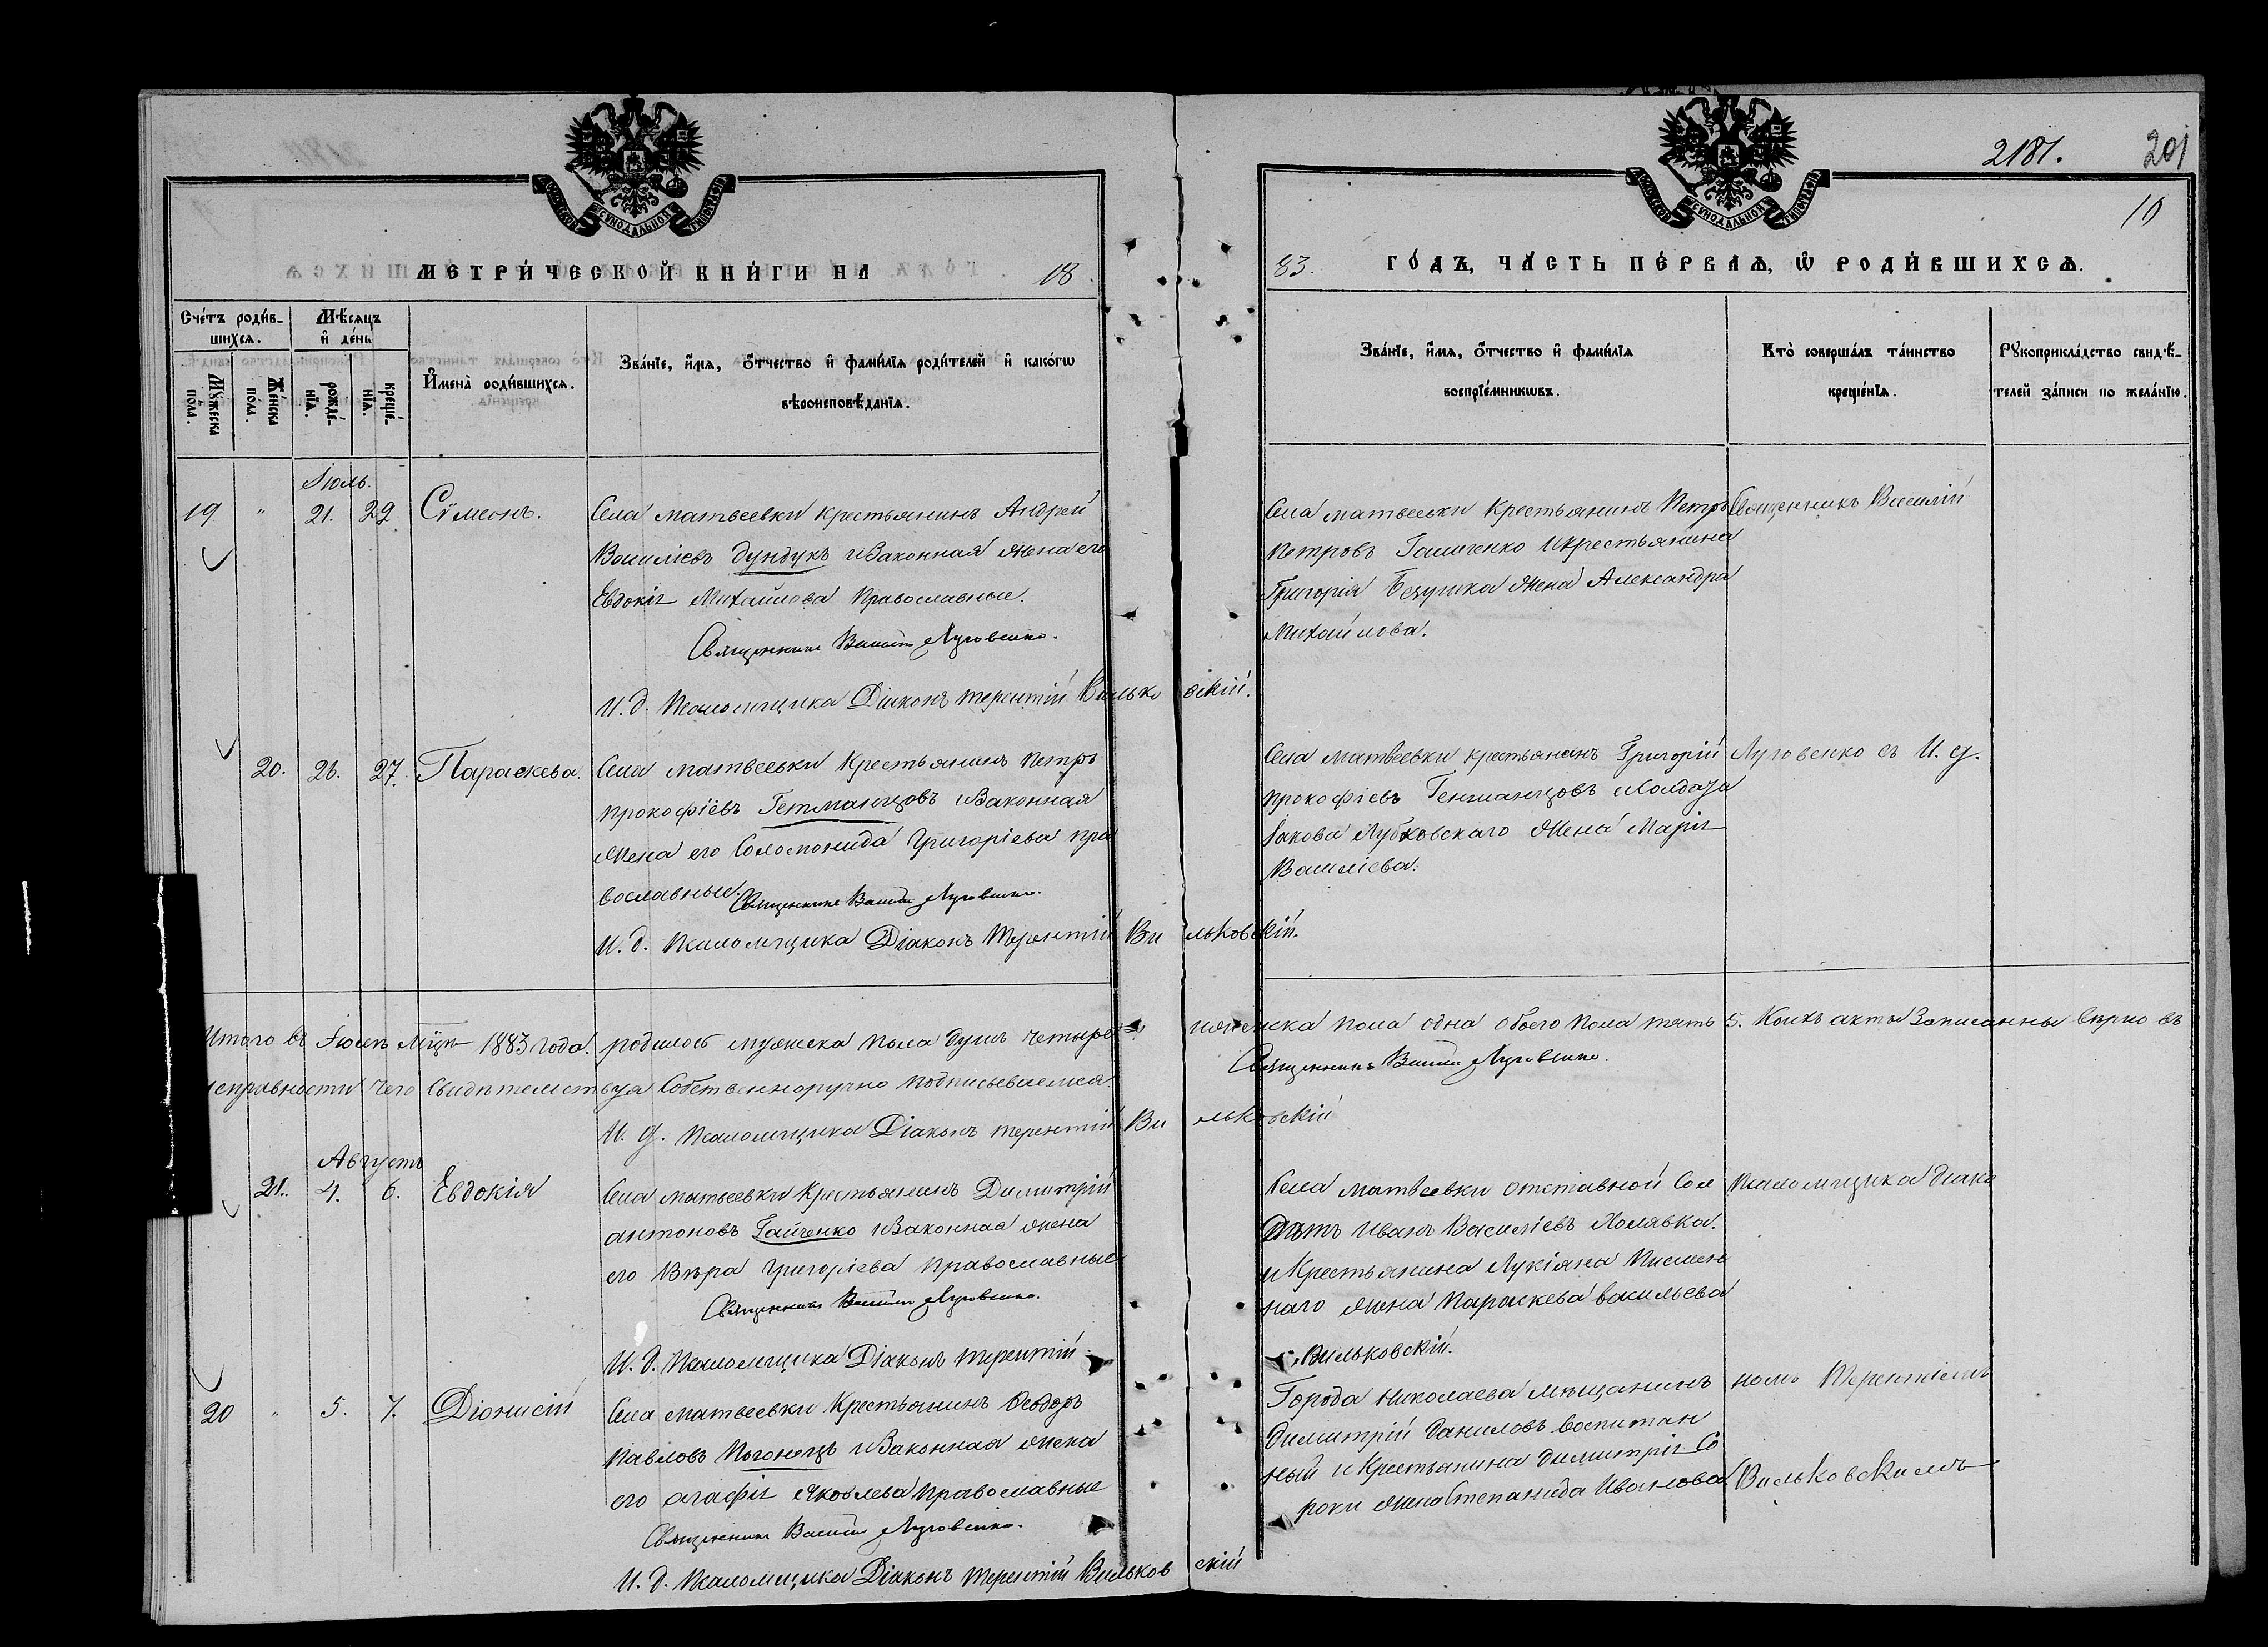 2181. 201
10
МОСКОВСКОЙ СѴНОДАЛЬНОЙ ТИПОГРАФІИ
МОСКОВСКОЙ СѴНОДАЛЬНОЙ ТИПОГРАФІИ
МЕТРИ́ЧЕСКОЙ КНИ́ГИ НА 18
83. ГО́ДЪ, ЧА́СТЬ ПЕ́РВАѦ, Ѡ҆ РОДИ́ВШИХСѦ.
Сче́тъ роди́в-
шихсѧ.
Мꙋ́жеска по́ла.
Же́нска по́ла.
Мѣ́сѧцъ
и҆ де́нь
рожде́-
нїѧ.
креще́-
нїѧ.
И҆мена̀ роди́вшихсѧ.
Зва́нїе, и҆́мѧ, ѻ҆́тчество и҆ фами́лїѧ роди́телей и҆ како́гѡ
вѣроисповѣ́данїѧ.
Зва́нїе, и҆́мѧ, ѻ҆́тчество и҆ фами́лїѧ
воспрїе́мникѡвъ.
Кто̀ соверша́лъ та́инство
креще́нїѧ.
Рꙋкоприкла́дство свидѣ́-
телей за́писи по жела́нїю.
Іюль.
19 " 21. 29. Сѵмеонъ.
Села Матвеевки крестьянинъ Андрей
Василіевъ Дундукъ и законная жена его
Евдокія Михайлова Православные.
Священникъ Василій Луговенко.
И. д. Псаломщика Діаконъ Терентій Вильковскій.
Села Матвеевки Крестьянинъ Петръ
Петровъ и крестьянина
Григорія жена Александра
Михайлова.
Священникъ Василій
20. 26. 27. Параскева.
Села Матвеевки Крестьянинъ Петръ
Прокофіевъ Гетманцовъ и законная
жена его Соломонида Григоріева пра
вославные. Священникъ Василій Луговенко.
И. д. Псаломщика Діаконъ Терентій Вильковскій.
Села Матвеевки крестьянинъ Григорій
Прокофіевъ Гетманцовъ и Солдата
Іакова Лубковскаго жена Марія
Василіева.
Луговенко съ И. д.
Итого въ Іюлѣ Мцѣ 1883 года. родилось мужеска пола душъ четыре 4. женска пола одна обоего пола пять 5. Коихъ акты Записанны вѣрно въ
исправности чего Свидѣтельствуя Собственноручно подписываемся. Священникъ Василій Луговенко.
И. д. Псаломщика Діаконъ Терентій Вильковскій
Августъ
21. 4. 6. Евдокія
Села Матвеевки Крестьянинъ Димитрій
Антоновъ Гайченко и законная жена
его Вѣра Григоріева Православные
Священникъ Василій Луговенко.
И. д. Псаломщика Діаконъ Терентій Вильковскій.
Села Матвеевки отставной Сол
датъ Иванъ Василіевъ Холявка.
и Крестьянина Лукіяна Писмен
наго жена Параскева Васильева
Псаломщика Діако
20 " 5. 7. Діонисій
Села Матвеевки Крестьянинъ Ѳеодоръ
Павловъ Погонецъ и законная жена
его Агафія Яковлева Православные
Священникъ Василій Луговенко.
И. д. Псаломщика Діаконъ Терентій Вильковскій
Города Николаева мѣщанинъ
Димитрій Даниловъ воспитан
ный и Крестьянина Димитрія Со
роки жена Степанида Иванова.
номъ Терентіемъ
Вильковскимъ